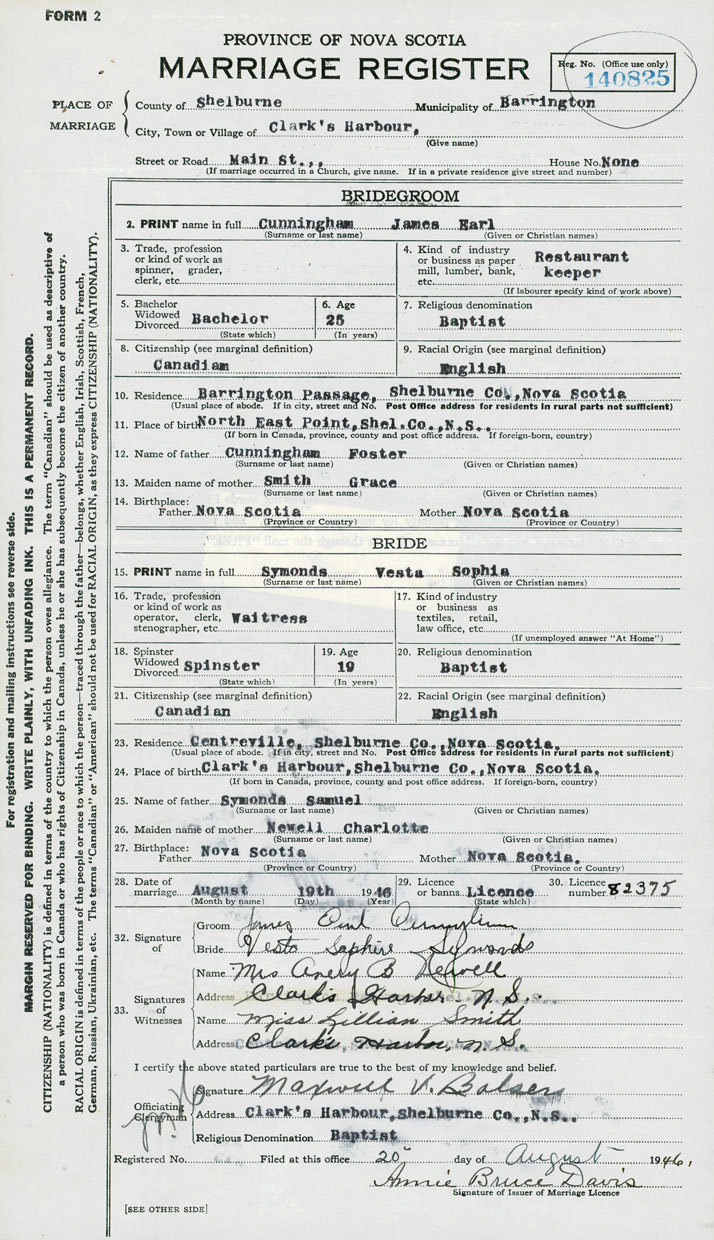 FORM 2
PROVINCE OF NOVA SCOTIA
MARRIAGE REGISTER
Reg. No. (Office use only)
140825
PLACE OF MARRIAGE
County of Shelburne Municipality of Barrington
City, Town or Village of Clark's Harbour,
(Give name)
Street or Road Main St.,, House No. None
(If marriage occurred in a Church, give name. If in a private residence give street and number)
BRIDEGROOM
2. PRINT name in full Cunningham James Earl
(Surname or last name) (Given or Christian names)
3. Trade, profession
or kind of work as
spinner, grader,
clerk, etc.
4. Kind of industry
or business as paper
mill, lumber, bank,
etc.
Restaurant
keeper
(If labourer specify kind of work above)
5. Bachelor
Widowed
Divorced Bachelor
(State which)
6. Age
25
(In years)
7. Religious denomination
Baptist
8. Citizenship (see marginal definition)
Canadian
9. Racial Origin (see marginal definition)
English
10. Residence Barrington Passage, Shelburne Co.,Nova Scotia
(Usual place of abode. If in city, street and No. Post Office address for residents in rural parts not sufficient)
11. Place of birth North East Point,Shel.Co.,N.S..
(If born in Canada, province, county and post office address. If foreign-born, country)
12. Name of father Cunningham Foster
(Surname or last name) (Given or Christian names)
13. Maiden name of mother Smith Grace
(Surname or last name) (Given or Christian names)
14. Birthplace:
Father Nova Scotia Mother Nova Scotia
(Province or Country) (Province or Country)
BRIDE
15. PRINT name in full Symonds Vesta Sophia
(Surname or last name) (Given or Christian names)
16. Trade, profession
or kind of work as
operator, clerk,
stenographer, etc.
Waitress
17. Kind of industry
or business as
textiles, retail,
law office, etc.
(If unemployed answer "At Home")
18. Spinster
Widowed
Divorced Spinster
(State which)
19. Age
19
(In years)
20. Religious denomination
Baptist
21. Citizenship (see marginal definition)
Canadian
22. Racial Origin (see marginal definition)
English
23. Residence Centreville, Shelburne Co.,Nova Scotia.
(Usual place of abode. If in city, street and No. Post Office address for residents in rural parts not sufficient)
24. Place of birth Clark's Harbour,Shelburne Co.,Nova Scotia.
(If born in Canada, province, county and post office address. If foreign-born, country)
25. Name of father Symonds Samuel
(Surname or last name) (Given or Christian names)
26. Maiden name of mother Newell Charlotte
(Surname or last name) (Given or Christian names)
27. Birthplace:
Father Nova Scotia Mother Nova Scotia.
(Province or Country) (Province or Country)
28. Date of
marriage August 19th 1946
(Month by name) (Day) (Year)
29. Licence
or banns Licence
(State which)
30. Licence
number 82375
32. Signature of
Groom James Earl Cunningham
Bride Vesta Saphire Symonds
33. Signatures of Witnesses
Name Mrs Avery B Newell
Address Clark's Harbor N.S..
Name Miss Lillian Smith
Address Clark's Harbor, N.S.
I certify the above stated particulars are true to the best of my knowledge and belief.
Officiating Clergyman
Signature Maxwell V. Bolser
Address Clark's Harbour,Shelburne Co.,N.S..
Religious Denomination Baptist
Registered No. Filed at this office 20 day of August 1946,
Annie Bruce Davis
Signature of Issuer of Marriage Licence
[SEE OTHER SIDE]
For registration and mailing instructions see reverse side.
MARGIN RESERVED FOR BINDING. WRITE PLAINLY, WITH UNFADING INK. THIS IS A PERMANENT RECORD.
CITIZENSHIP (NATIONALITY) is defined in terms of the country to which the person owes allegiance. The term "Canadian" should be used as descriptive of
a person who was born in Canada or who has rights of Citizenship in Canada, unless he or she has subsequently become the citizen of another country.
RACIAL ORIGIN is defined in terms of the people or race to which the person—traced through the father—belongs, whether English, Irish, Scottish, French,
German, Russian, Ukrainian, etc. The terms "Canadian" or "American" should not be used for RACIAL ORIGIN, as they express CITIZENSHIP (NATIONALITY).